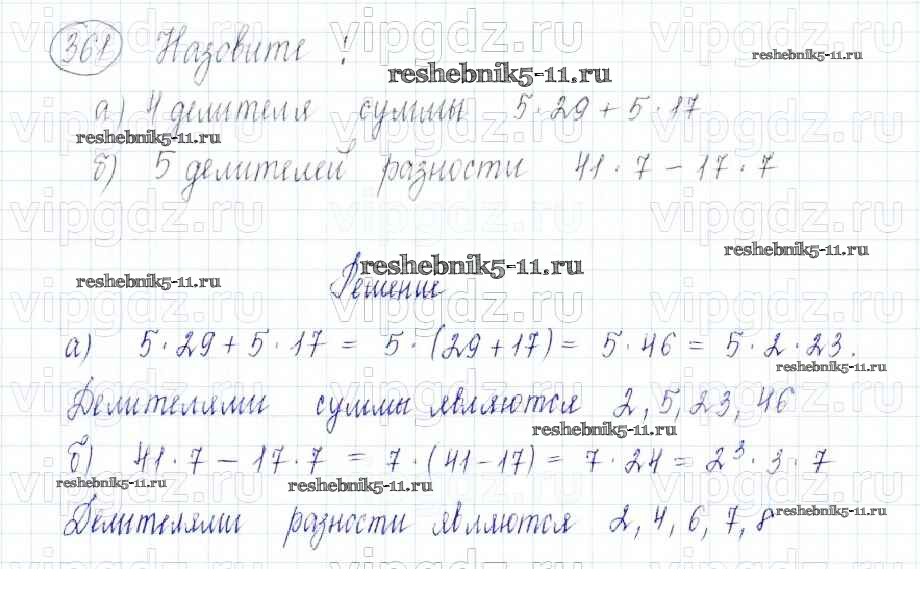 361 Назовите :
reshebnik5-11.ru
reshebnik5-11.ru
а) 4 делителя суммы 5·29 + 5·17
reshebnik5-11.ru
б) 5 делителей разности 41·7 − 17·7
vipgdz.ru vipgdz.ru vipgdz.ru
reshebnik5-11.ru
reshebnik5-11.ru
reshebnik5-11.ru
Решение
vipgdz.ru vipgdz.ru vipgdz.ru
а) 5·29 + 5·17 = 5·(29+17) = 5·46 = 5·2·23.
reshebnik5-11.ru
Делителями суммы являются 2, 5, 23, 46
reshebnik5-11.ru
б) 41·7 − 17·7 = 7·(41−17) = 7·24 = 2³·3·7
reshebnik5-11.ru
reshebnik5-11.ru
Делителями разности являются 2, 4, 6, 7, 8
reshebnik5-11.ru